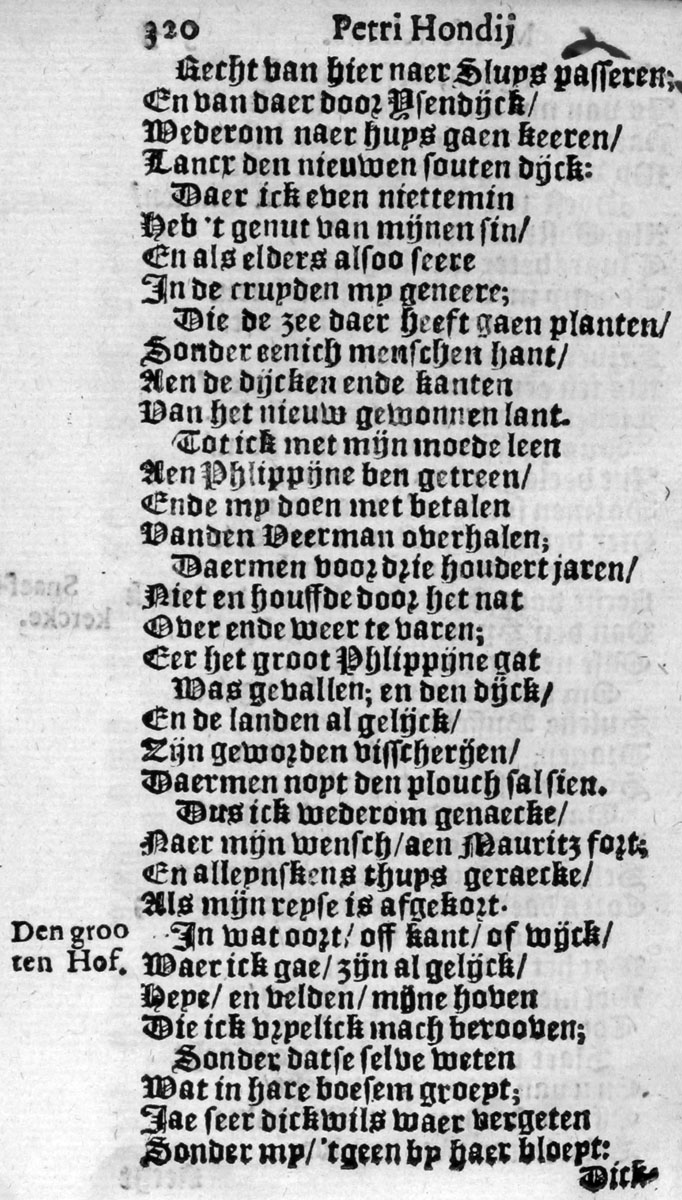 320 Petri Hondij
Recht van hier naer Sluys passeren;
En van daer door Ysendijck/
Wederom naer huys gaen keeren/
Lancx den nieuwen souten dijck:
Daer ick even niettemin
Heb 't genut van mijnen sin/
En als elders alsoo seere
In de cruyden my geneere;
Die de zee daer heeft gaen planten/
Sonder eenich menschen hant/
Aen de dijcken ende kanten
Van het nieuw gewonnen lant.
Tot ick met mijn moede leen
Aen Phlippijne ben getreen/
Ende my doen met betalen
Vanden Veerman overhalen;
Daermen voor drie houdert jaren/
Niet en houffde door het nat
Over ende weer te varen;
Eer het groot Phlippijne gat
Was gevallen; en den dijck/
En de landen al gelijck/
Zijn geworden visscherijen/
Daermen noyt den plouch sal sien.
Dus ick wederom genaecke/
Naer mijn wensch/ aen Mauritz fort;
En alleynskens thuys geraecke/
Als mijn reyse is afgekort.
Den groo
ten Hof.
In wat oort/ off kant/ of wijck/
Waer ick gae/ zijn al gelijck/
Heye/ en velden/ mijne hoven
Die ick vrpelick mach berooven;
Sonder datse selve weten
Wat in hare boesem groept;
Jae seer dickwils waer vergeten
Sonder my/ 'tgeen by haer bloept:
Dick-